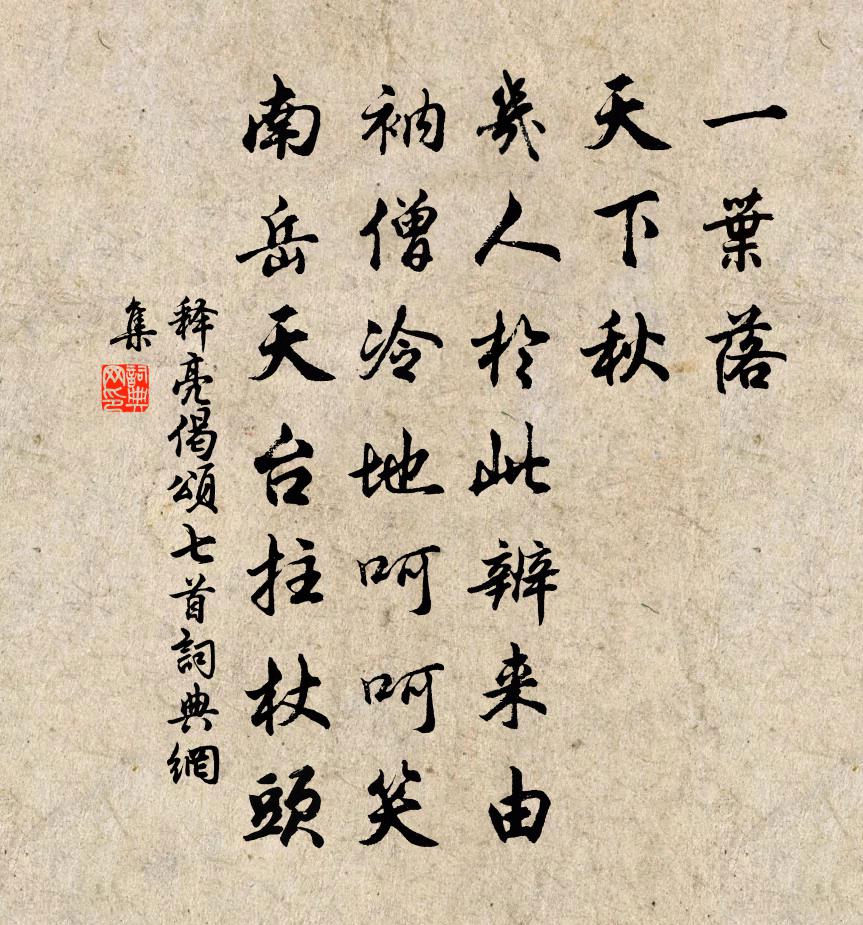 一葉落
天下秋
幾人於此辨来由
衲僧冷地呵呵笑
南岳天台拄杖頭
释亮偈頌七首詞典網
集
詞典网印